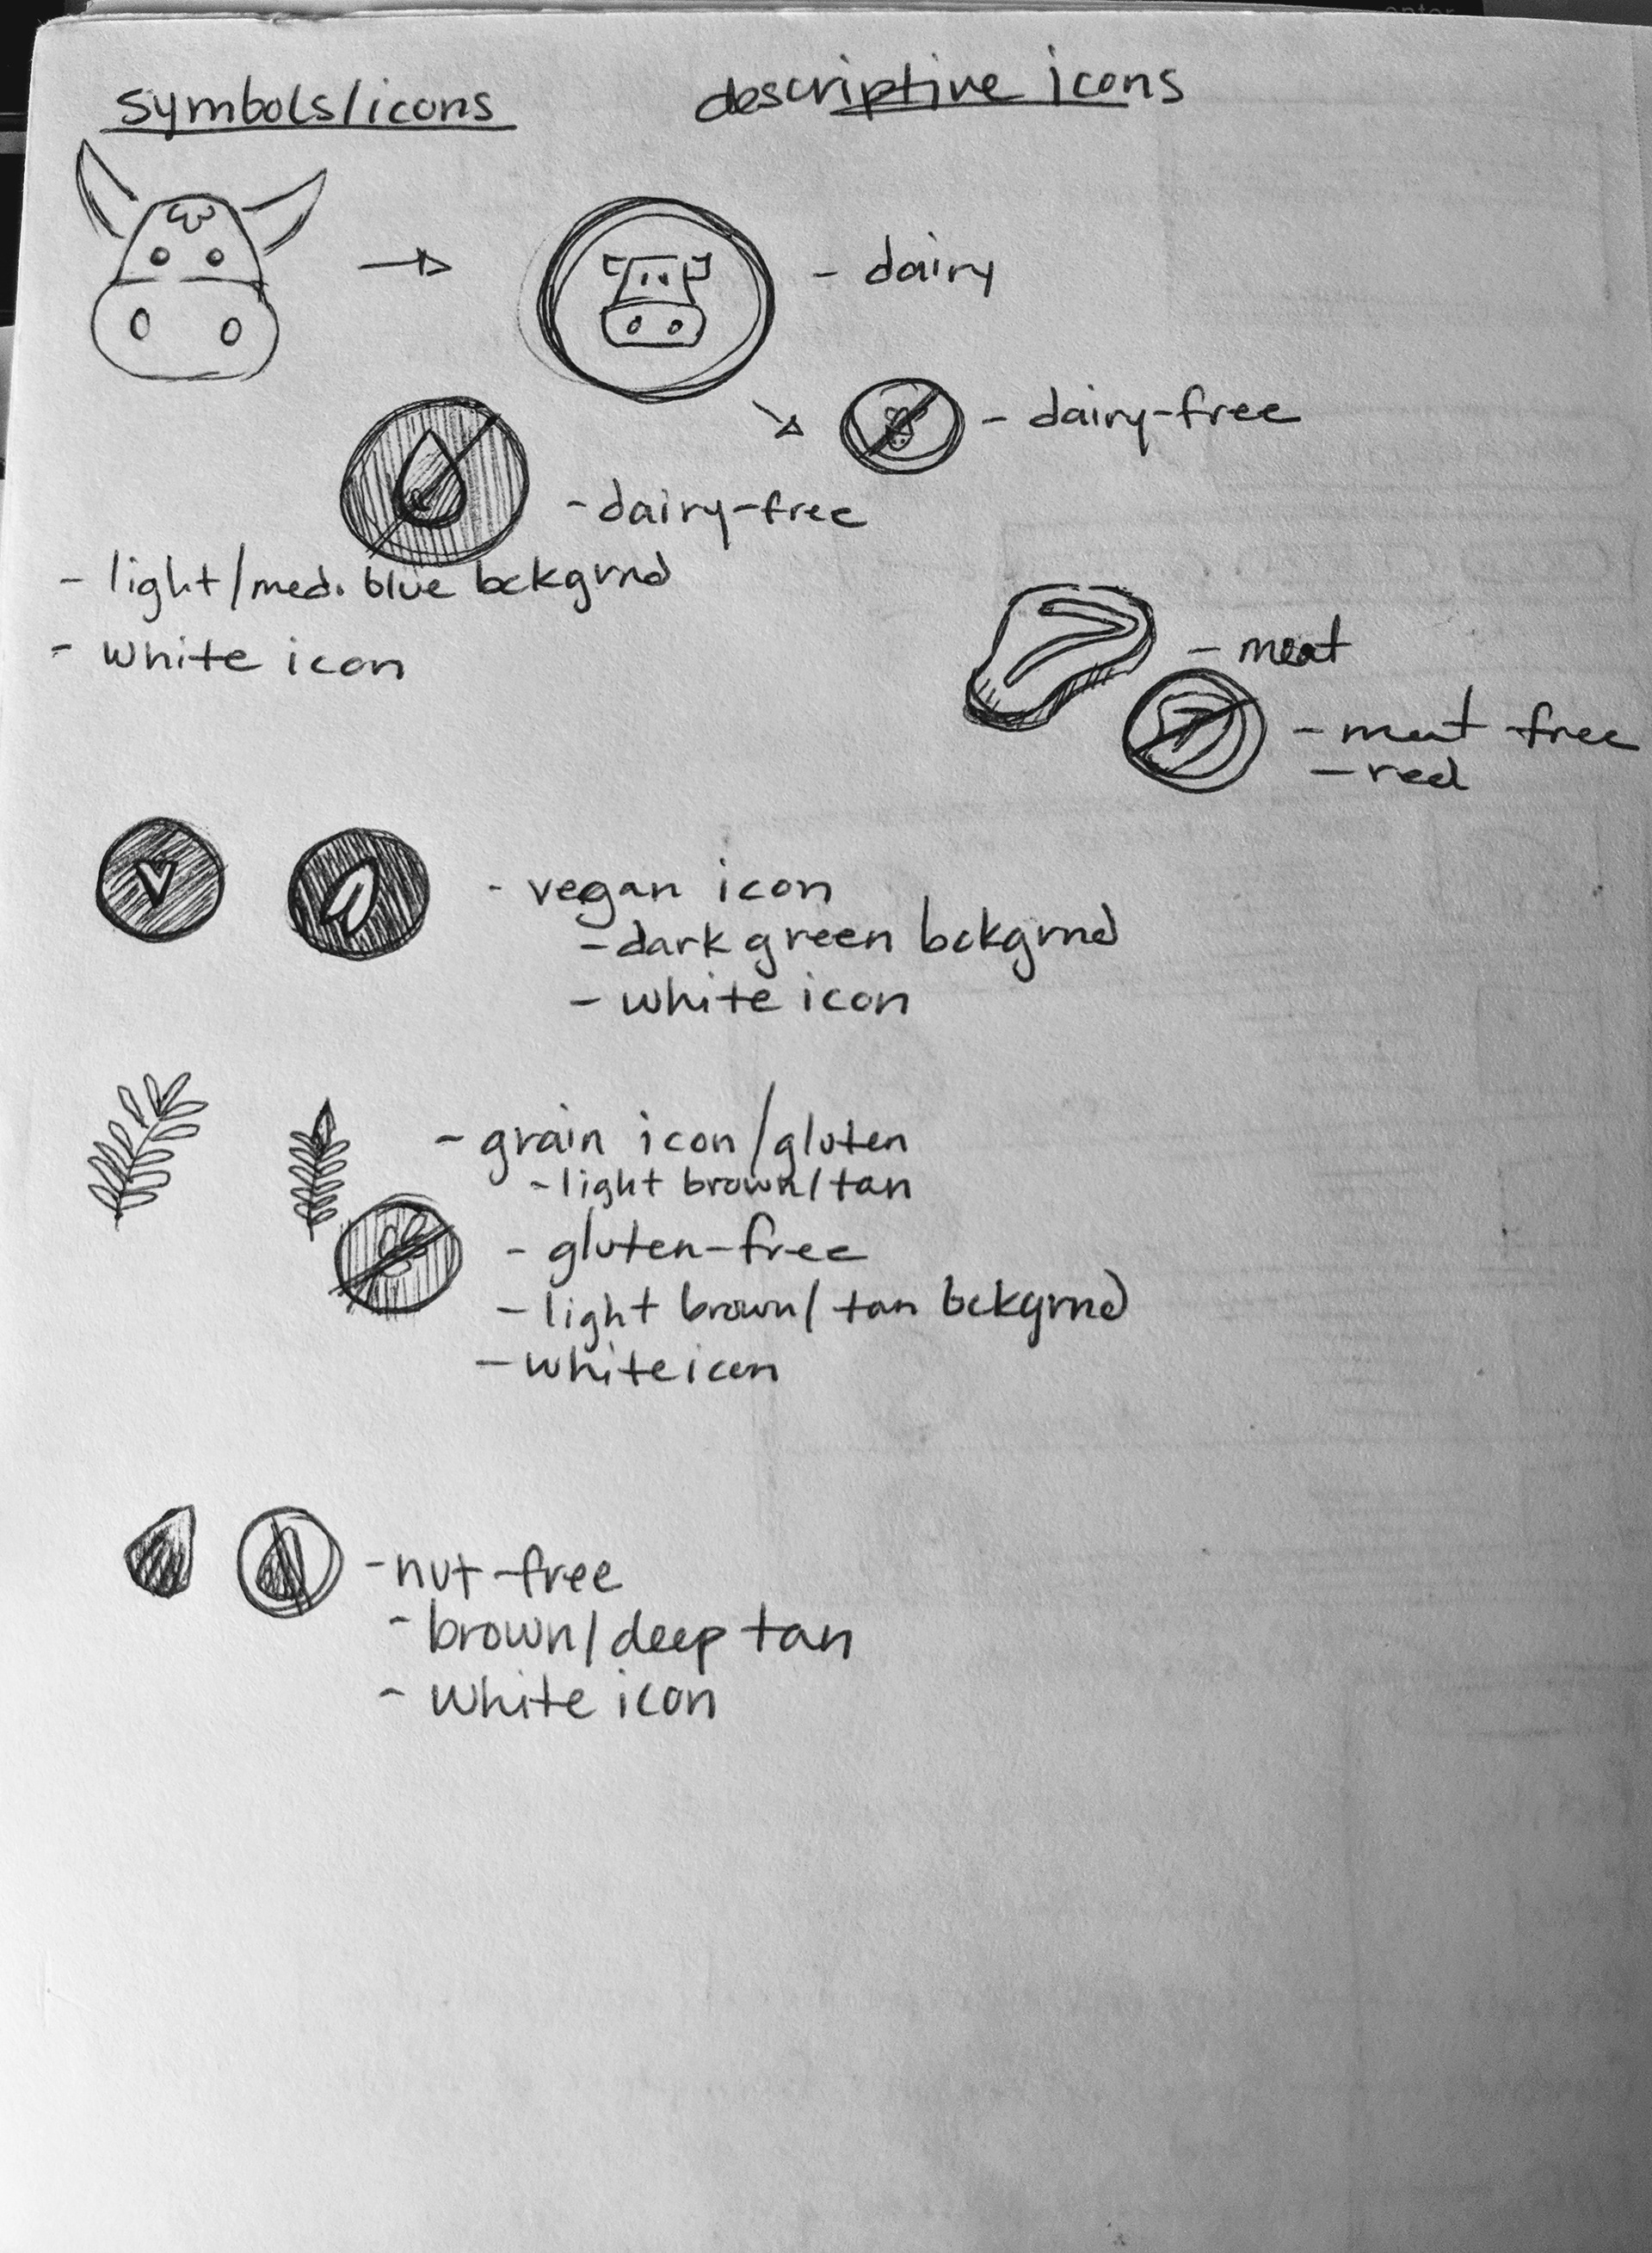 symbols/icons
descriptive icons
- dairy
- dairy-free
- dairy-free
- light/med. blue bckgrnd
- white icon
- meat
- meat-free
- red
V
- vegan icon
- dark green bckgrnd
- white icon
- grain icon/gluten
- light brown/tan
- gluten-free
- light brown/tan bckgrnd
- white icon
- nut-free
- brown/deep tan
- white icon